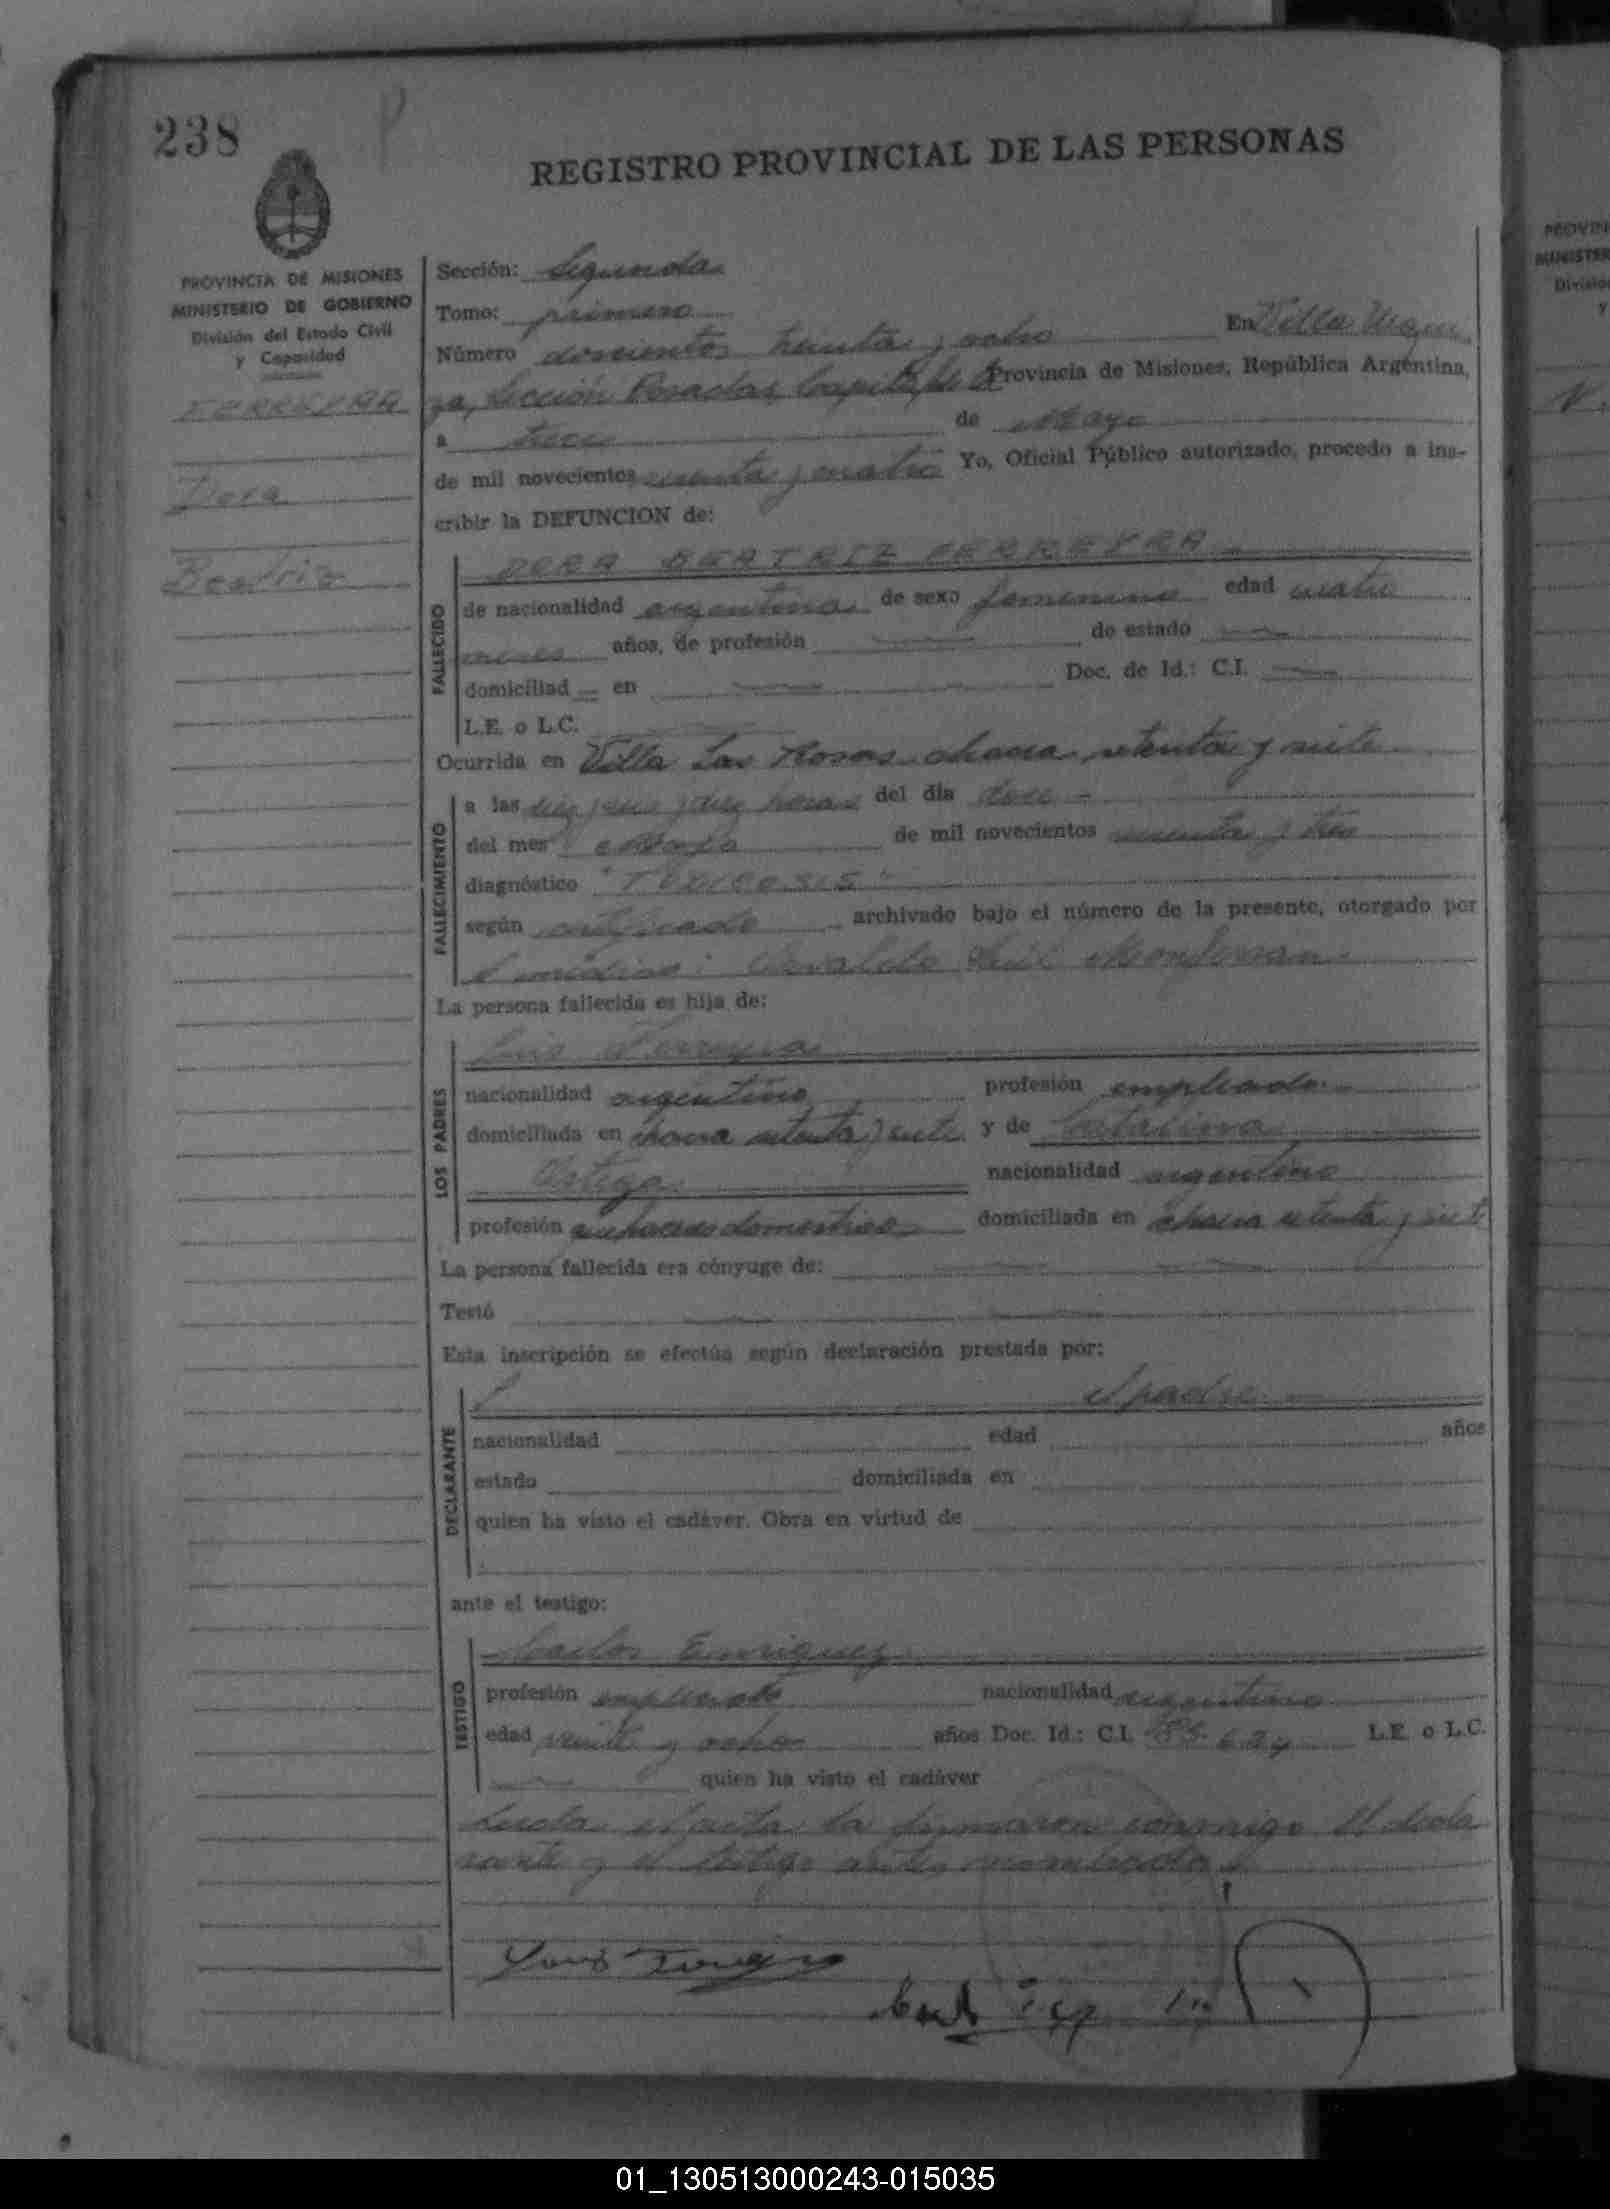 238
REGISTRO PROVINCIAL DE LAS PERSONAS
PROVINCIA DE MISIONES
MINISTERIO DE GOBIERNO
División del Estado Civil
y Capacidad
FERREYRA
Dora
Beatriz
Sección: Segunda
Tomo: primero
Número doscientos treinta y ocho En Villa Urqui
za, Sección Posadas, Capital de la Provincia de Misiones, República Argentina,
a trece de Mayo
de mil novecientos y cuatro Yo, Oficial Público autorizado, procedo a ins-
cribir la DEFUNCION de:
FALLECIDO
DORA BEATRIZ FERREYRA
de nacionalidad argentina de sexo femenino edad cuatro
meses años, de profesión de estado
domiciliad en Doc. de Id.: C.I.
L.E. o L.C.
Ocurrida en Villa Las Rosas chacra setenta y siete
FALLECIMIENTO
a las diez horas del día doce
del mes Mayo de mil novecientos
diagnóstico "TOXICOSIS"
según certificado archivado bajo el número de la presente, otorgado por
el médico: Osvaldo
La persona fallecida es hija de:
LOS PADRES
Luis Ferreyra
nacionalidad argentino profesión empleado
domiciliada en chacra setenta y siete y de Catalina
Ortega nacionalidad argentina
profesión quehaceres domesticos domiciliada en chacra setenta y siete
La persona fallecida era cónyuge de:
Testó
Esta inscripción se efectúa según declaración prestada por:
DECLARANTE
el padre
nacionalidad edad años
estado domiciliada en
quien ha visto el cadáver. Obra en virtud de
ante el testigo:
TESTIGO
Carlos Enriquez
profesión empleado nacionalidad argentino
edad veinte y ocho años Doc. Id.: C.I. 85.624 L.E. o L.C.
quien ha visto el cadáver
Leida el acta la firmaron conmigo el decla
rante y el testigo antes nombrado
PROVIN
MINISTER
División
y
01_130513000243-015035